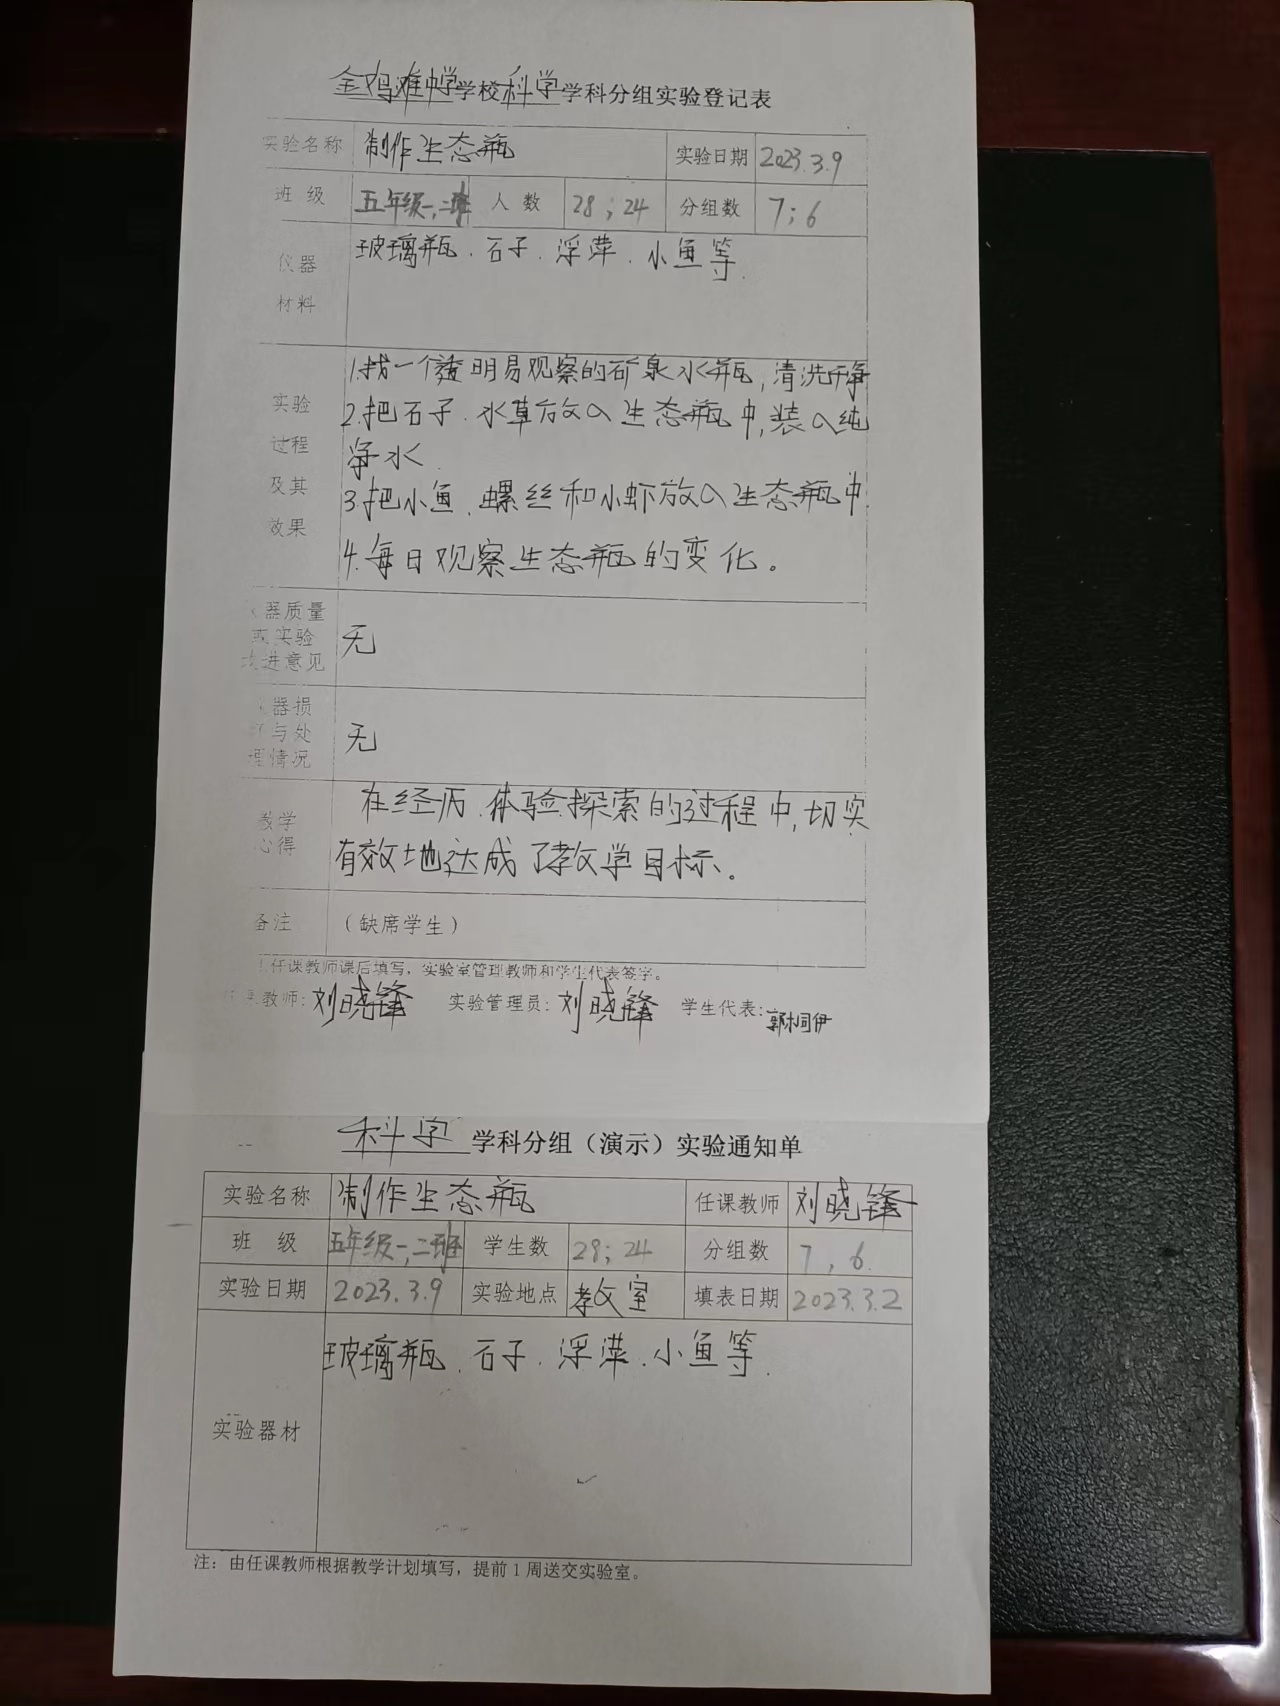 金鸡滩中学学校科学学科分组实验登记表
实验名称 制作生态瓶 实验日期 2023.3.9
班级 五年级一,二班 人数 28;24 分组数 7;6
仪器
材料
玻璃瓶.石子.浮萍.小鱼等.
实验
过程
及其
效果
1.找一个透明易观察的矿泉水瓶,清洗干净
2.把石子.水草放入生态瓶中,装入纯
净水.
3.把小鱼.螺丝和小虾放入生态瓶中.
4.每日观察生态瓶的变化。
器质量
实验
进意见
无
器损
与处
理情况
无
教学
心得
在经历.体验.探索的过程中,切实
有效地达成了教学目标。
备注 (缺席学生)
任课教师课后填写,实验室管理教师和学生代表签字。
教师:刘晓锋 实验管理员:刘晓锋 学生代表:郭桐伊
科学学科分组(演示)实验通知单
实验名称 制作生态瓶 任课教师 刘晓锋
班级 五年级一,二班 学生数 28;24 分组数 7,6.
实验日期 2023.3.9 实验地点 教室 填表日期 2023.3.2
实验器材 玻璃瓶.石子.浮萍.小鱼等.
注:由任课教师根据教学计划填写,提前1周送交实验室。